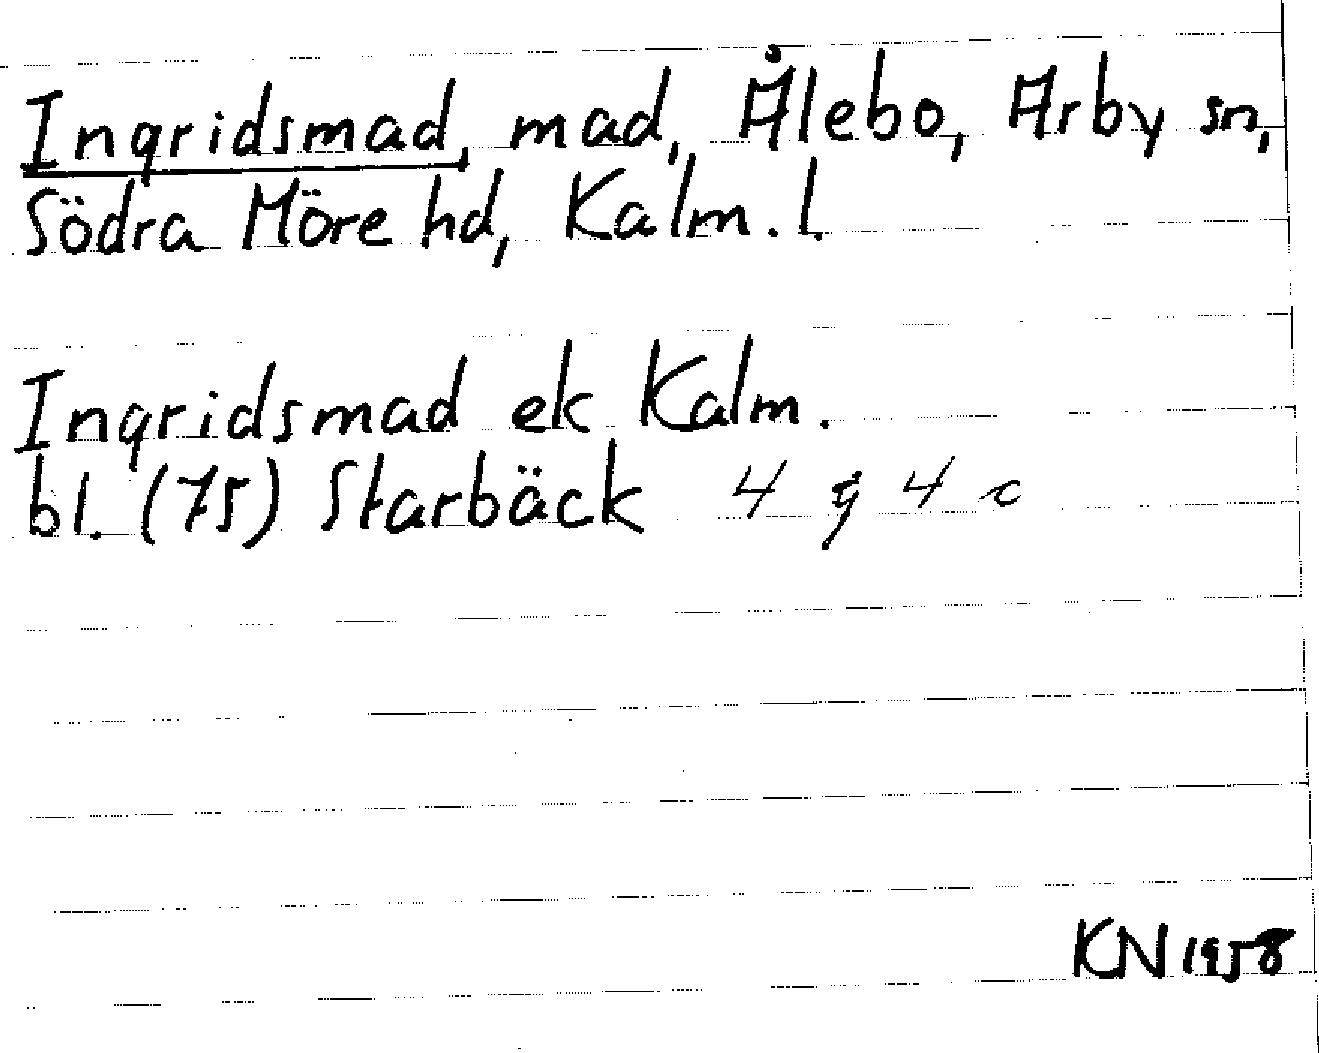 Ingridsmad, mad, Ålebo, Arby sn,
Södra Möre hd, Kalm. l.
Ingridsmad ek Kalm.
bl. (75) Starbäck 4 g 4 c
KN 1958